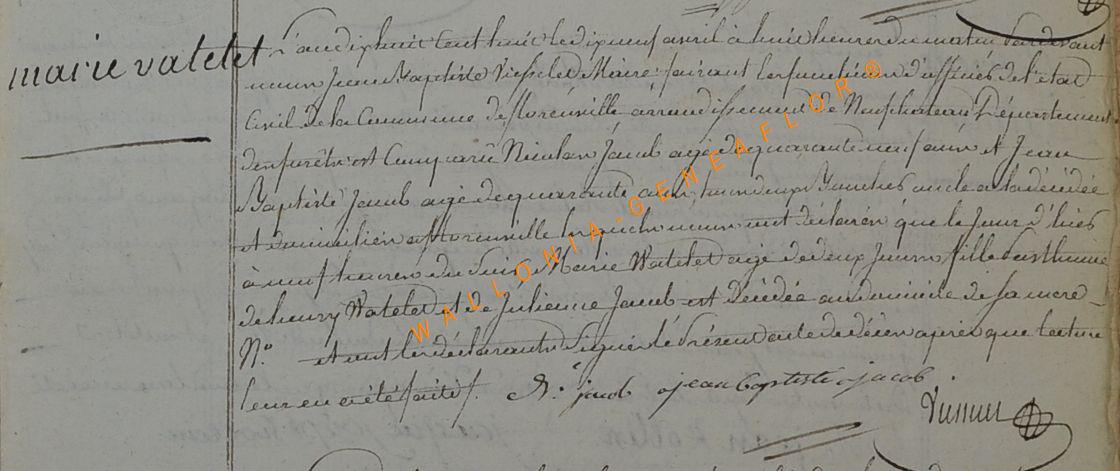 marie vatelet
L'an dix huit cent huit le dix neuf avril à huit heures du matin Pardevant
nous Jean Baptiste Maire faisant les fonctions d'officier de l'état
Civil de la Commune de florenville arrondissement de Neufchateau Département
des forêts est Comparu Nicolas Jacob agé de quarante neuf ans et Jean
Baptiste Jacob agé de quarante ans tous deux oncle a la décédée
et domiciliés a florenville lesquels nous ont déclarés que le Jour d'hier
à neuf heures du Soir Marie Watelet agé de deux Jours fille
de henry Watelet et de Julienne Jacob est décédée au domicile de sa mere
N.° et ont les déclarants Signé le Présent acte de décès après que lecture
leur en a été faite. N: jacob jean baptiste jacob
WALLONIA-GENEAFLOR®